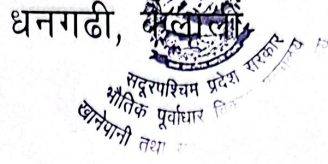 धनगढी, कैलाली
सदूरपश्चिम प्रदेश सरकार
भौतिक पूर्वाधार
खानेपानी तथा